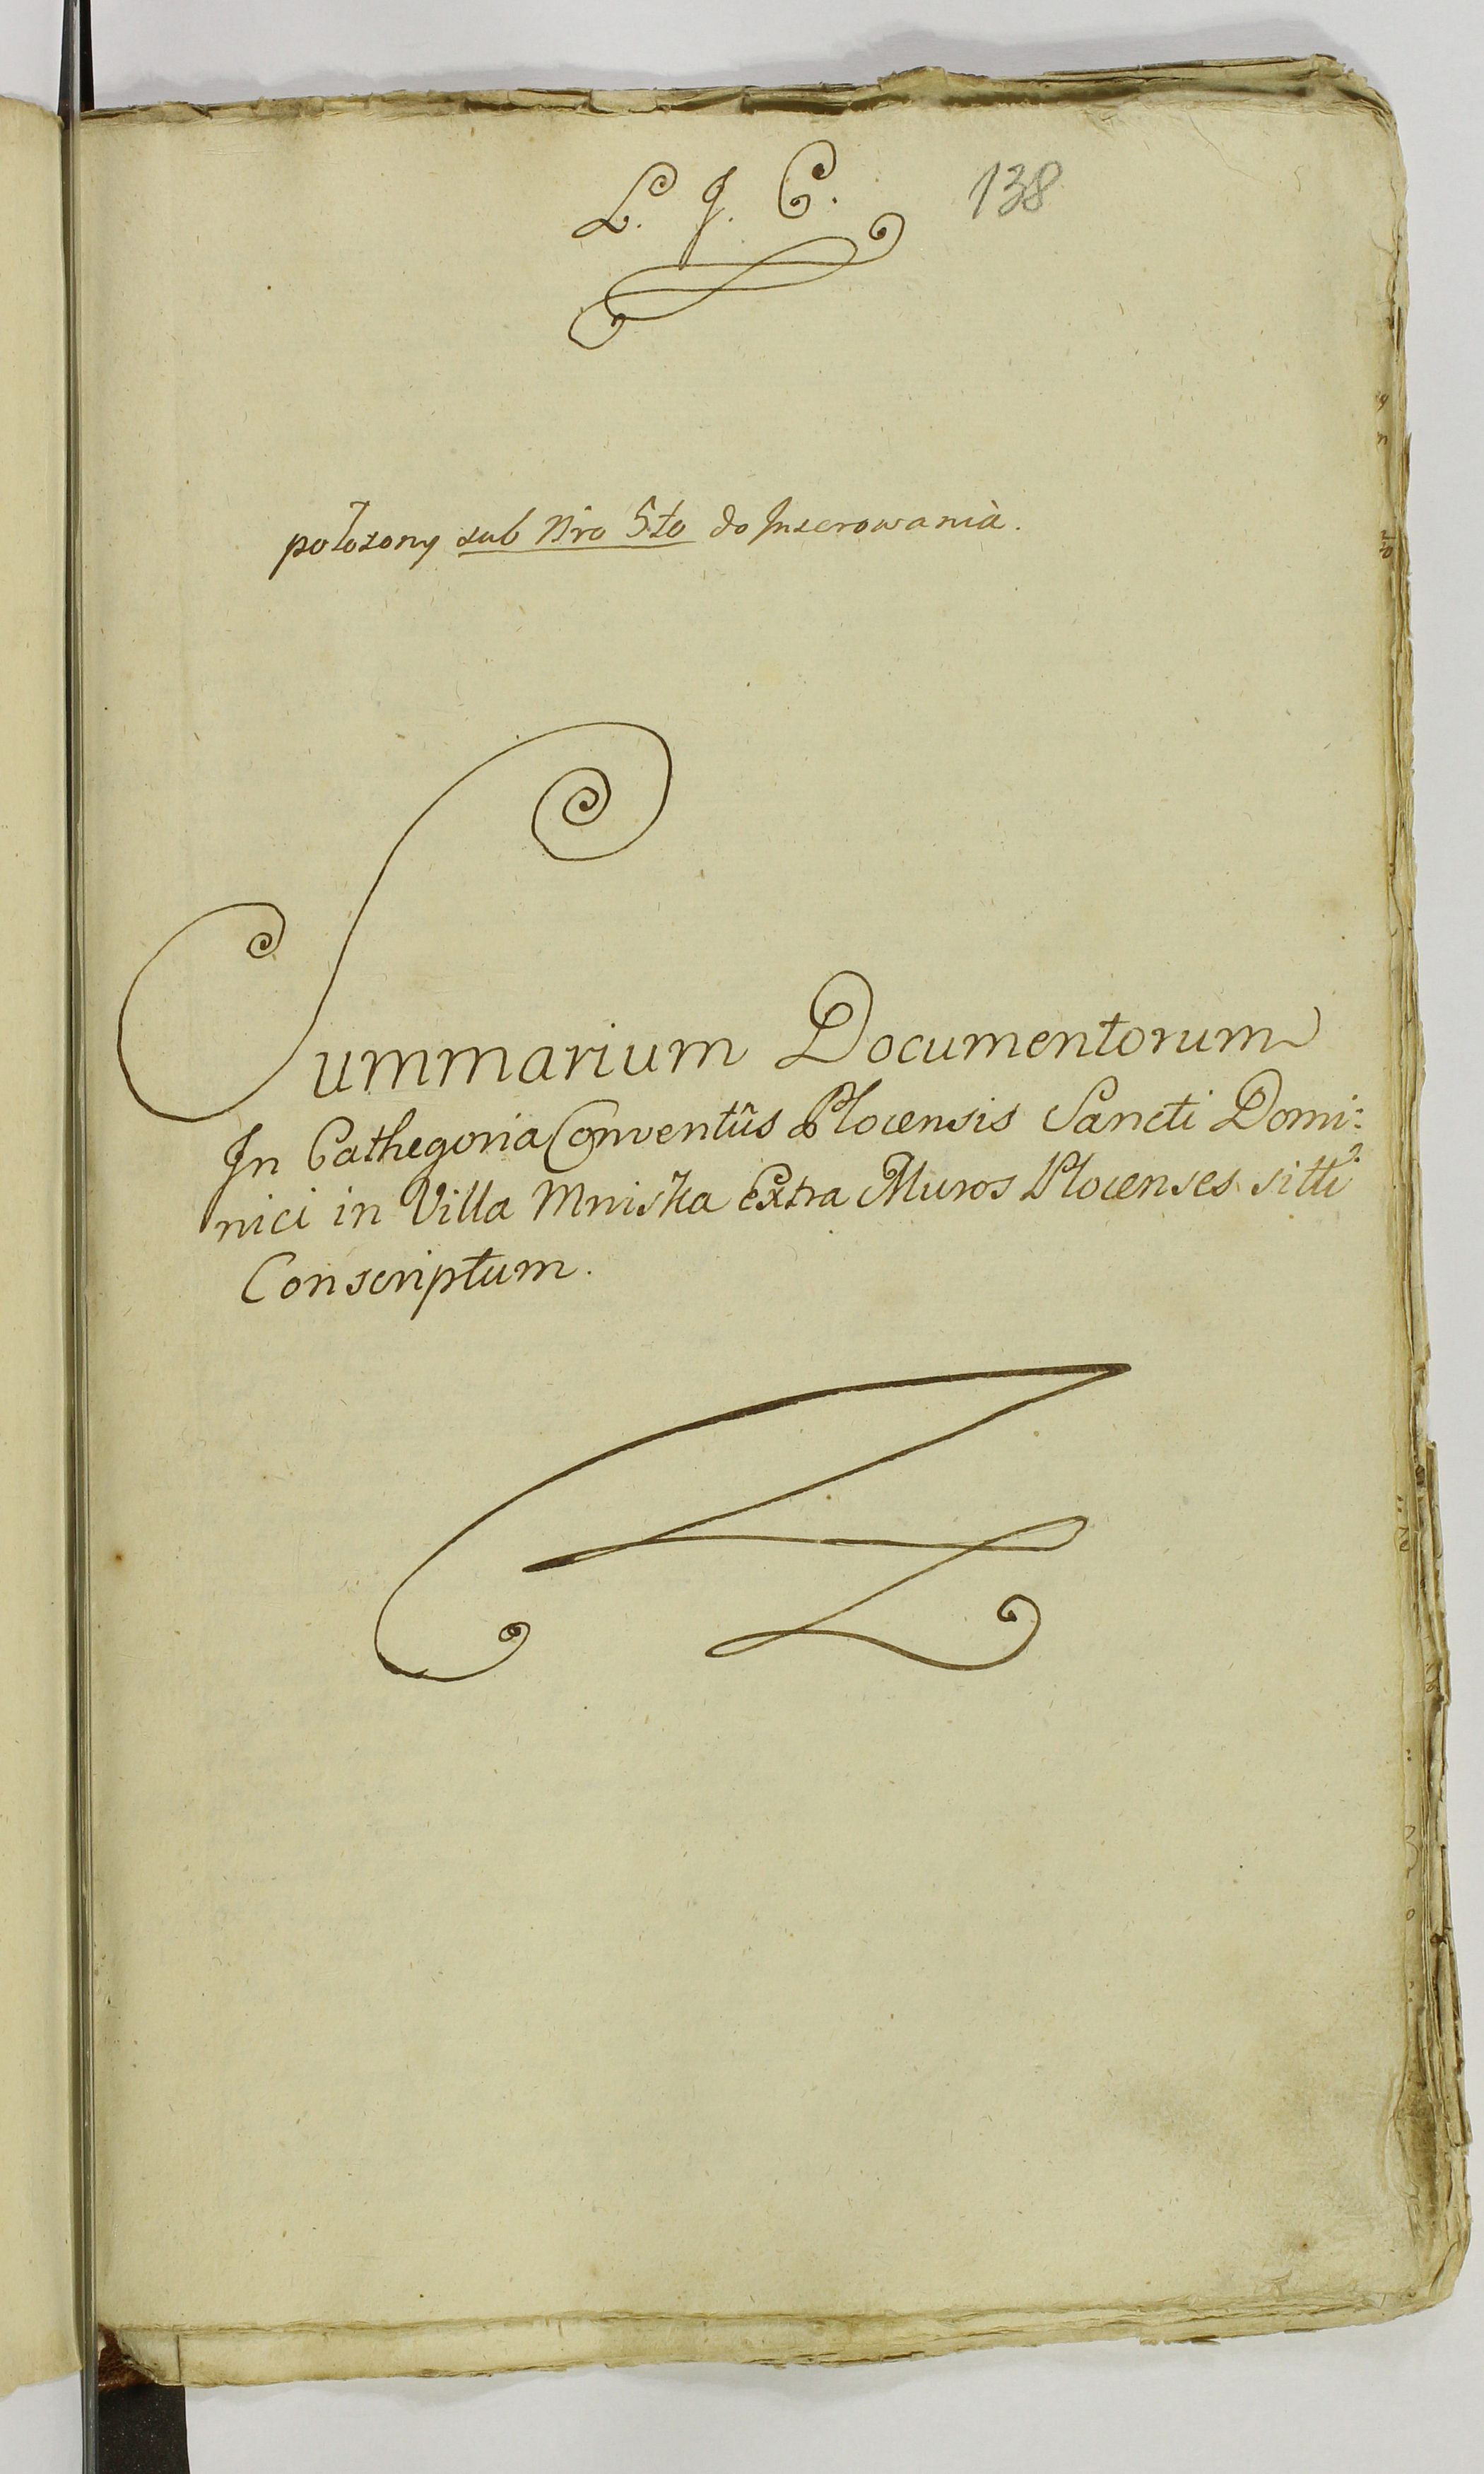 L. J. C. 138
położony sub Nro 5to do Inserowania.
Summarium Documentorum
In Cathegoria Conventûs Plocensis Sancti Domi:
nici in Villa Mniszka Extra Muros Plocenses sitti
Conscriptum.